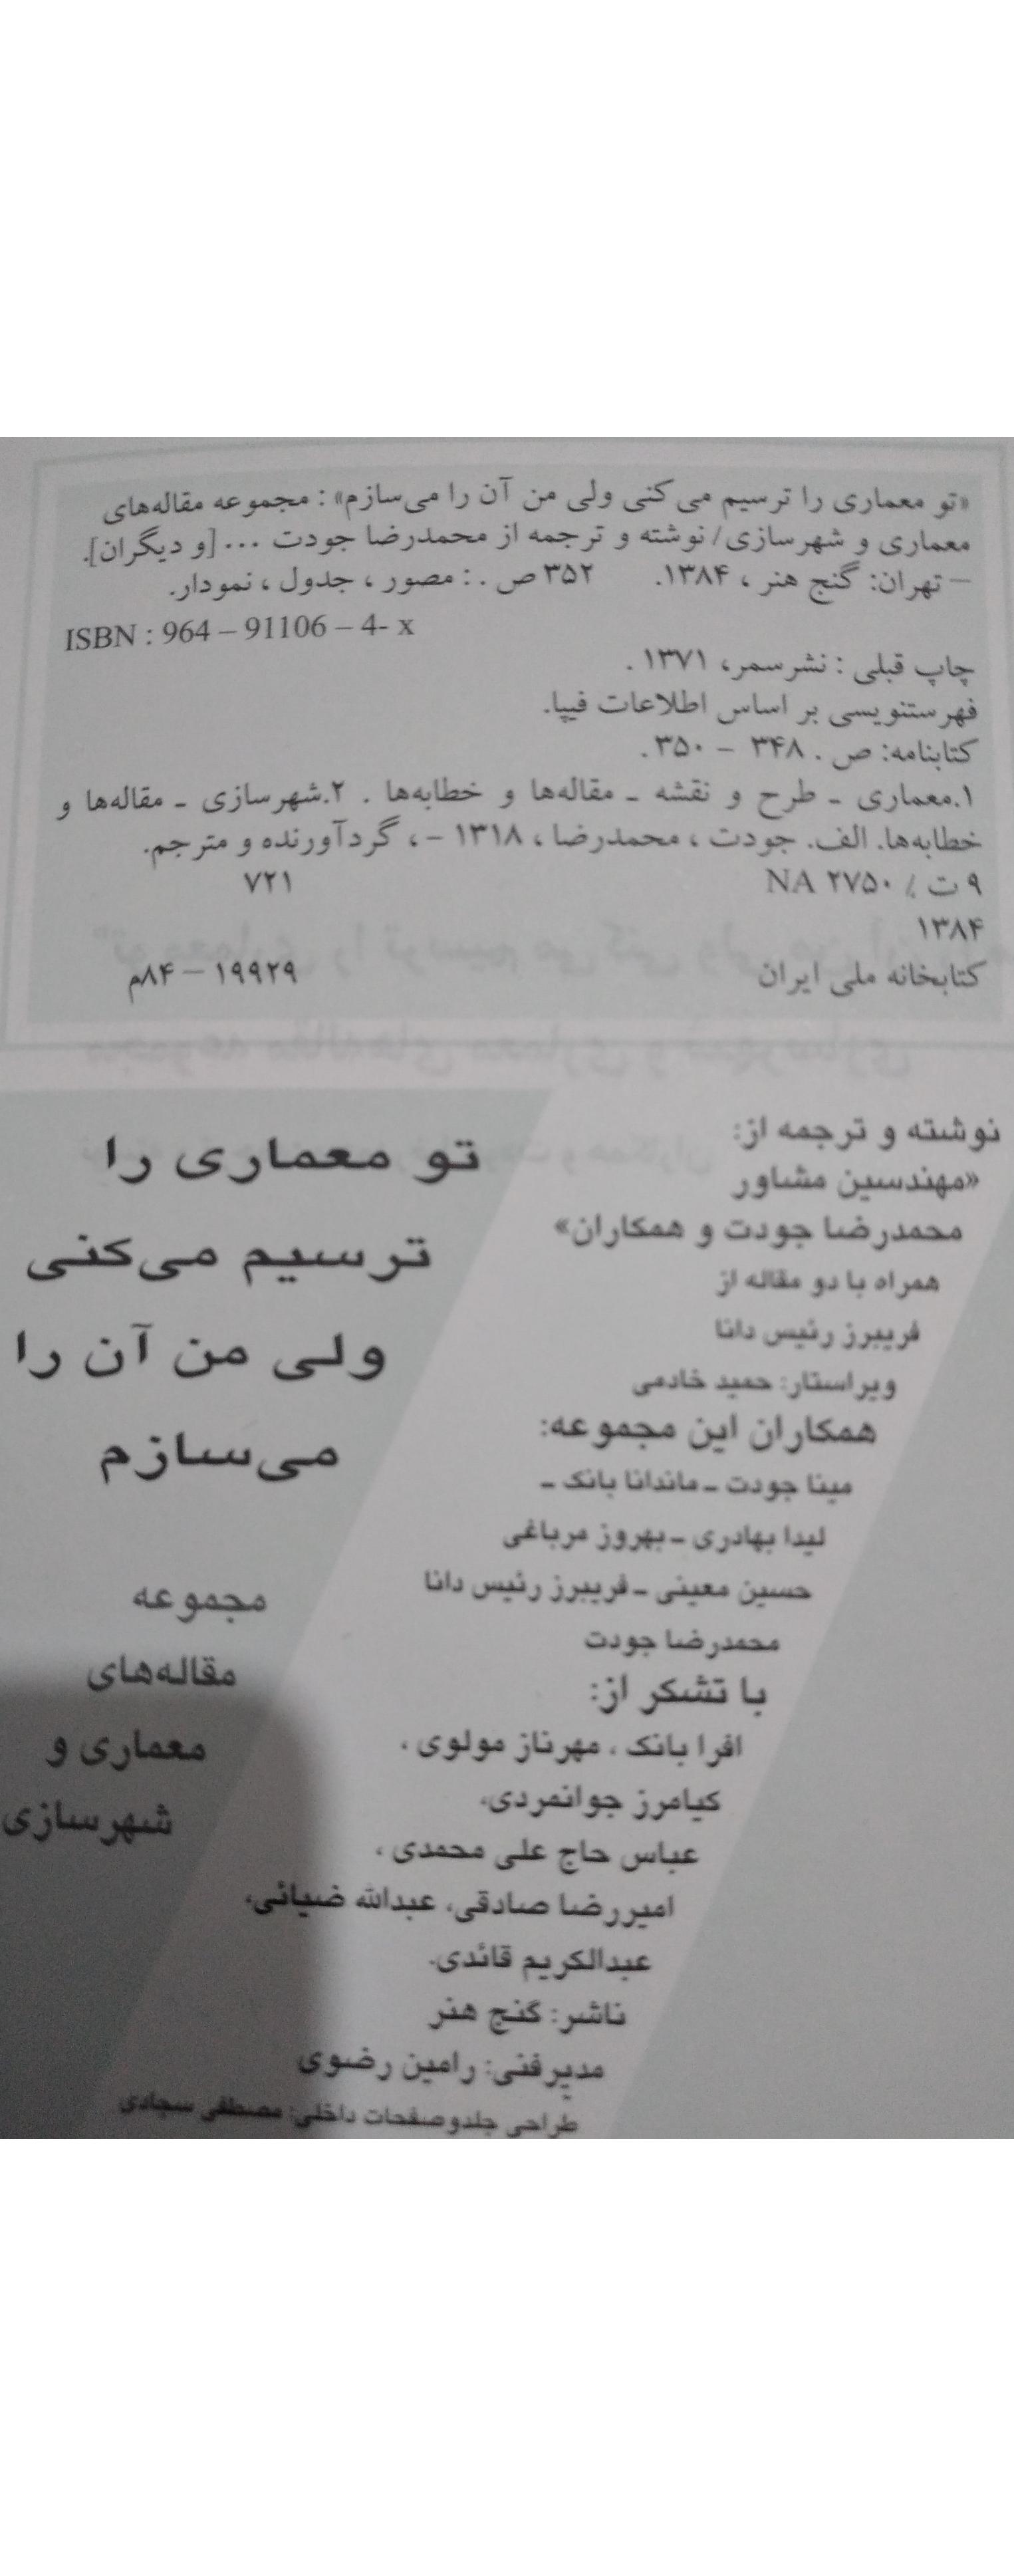 «تو معماری را ترسیم می‌کنی ولی من آن را می‌سازم» : مجموعه مقاله‌های
معماری و شهرسازی/ نوشته و ترجمه از محمدرضا جودت ... [و دیگران].
– تهران: گنج هنر ، ۱۳۸۴. ۳۵۲ ص . : مصور ، جدول ، نمودار.
ISBN : 964 – 91106 – 4- x
چاپ قبلی : نشر سمر، ۱۳۷۱ .
فهرستنویسی بر اساس اطلاعات فیپا.
کتابنامه: ص . ۳۴۸ – ۳۵۰ .
۱.معماری ـ طرح و نقشه ـ مقاله‌ها و خطابه‌ها . ۲.شهرسازی ـ مقاله‌ها و
خطابه‌ها. الف. جودت ، محمدرضا ، ۱۳۱۸ – ، گردآورنده و مترجم.
۹ ت / NA ۲۷۵۰ ۷۲۱
۱۳۸۴
کتابخانه ملی ایران ۱۹۹۲۹ – ۸۴م
تو معماری را
ترسیم می‌کنی
ولی من آن را
می‌سازم
مجموعه
مقاله‌های
معماری و
شهرسازی
نوشته و ترجمه از:
«مهندسین مشاور
محمدرضا جودت و همکاران»
همراه با دو مقاله از
فریبرز رئیس دانا
ویراستار: حمید خادمی
همکاران این مجموعه:
مینا جودت ـ ماندانا بانک ـ
لیدا بهادری ـ بهروز مرباغی
حسین معینی ـ فریبرز رئیس دانا
محمدرضا جودت
با تشکر از:
افرا بانک ، مهرناز مولوی ،
کیامرز جوانمردی،
عباس حاج علی محمدی ،
امیررضا صادقی، عبدالله ضیائی،
عبدالکریم قائدی.
ناشر: گنج هنر
مدیرفنی: رامین رضوی
طراحی جلدوصفحات داخلی: مصطفی سجادی